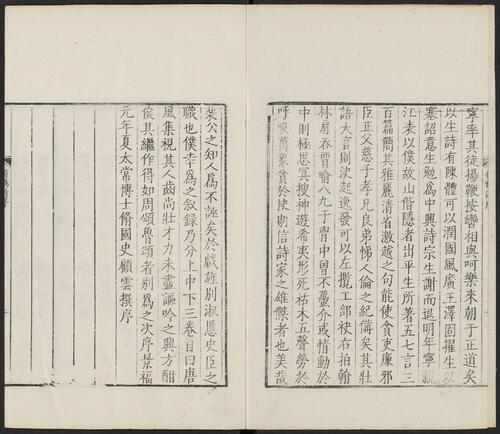 寧率其徒揚鞭按轡相與呵樂來朝于正道矣
以生詩有陳體可以潤國風廣王澤固擢生以
塞詔意生勉為中興詩宗生謝而退明年寧親
江表以僕故山偕隱者出平生所著五七言三
百篇簡其雅麗清省激越之句能使貪吏廉邪
臣正父慈子孝兄良弟悌人倫之紀備矣其壯
語大言則決起逸發可以左攬工部袂右拍翰
林肩吞賈喻八九于胷中曾不蠆介或情動於
中則極思冥搜神遊希夷形死枯木五聲勞於
呼吸萬象貧於抉剔信詩家之雄傑者也美哉
裴公之知人為不誣矣於戲旌別淑慝史臣之
職也僕幸為之叙録乃分上中下三卷目曰唐
風集視其人齒尚壯才力未盡謳吟之興方酣
俟其繼作得如周頌魯頌者別為之次序景福
元年夏太常博士脩國史顧雲撰序